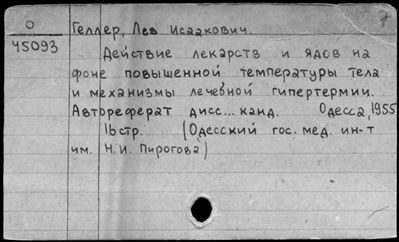 О
45093
Геллер, Лев Исаакович.
Действие лекарств и ядов на
фоне повышенной температуры тела
и механизмы лечебной гипертермии.
Автореферат дисс... канд. Одесса, 1955
16стр. (Одесский гос. мед. ин-т
им. Н.И. Пирогова)